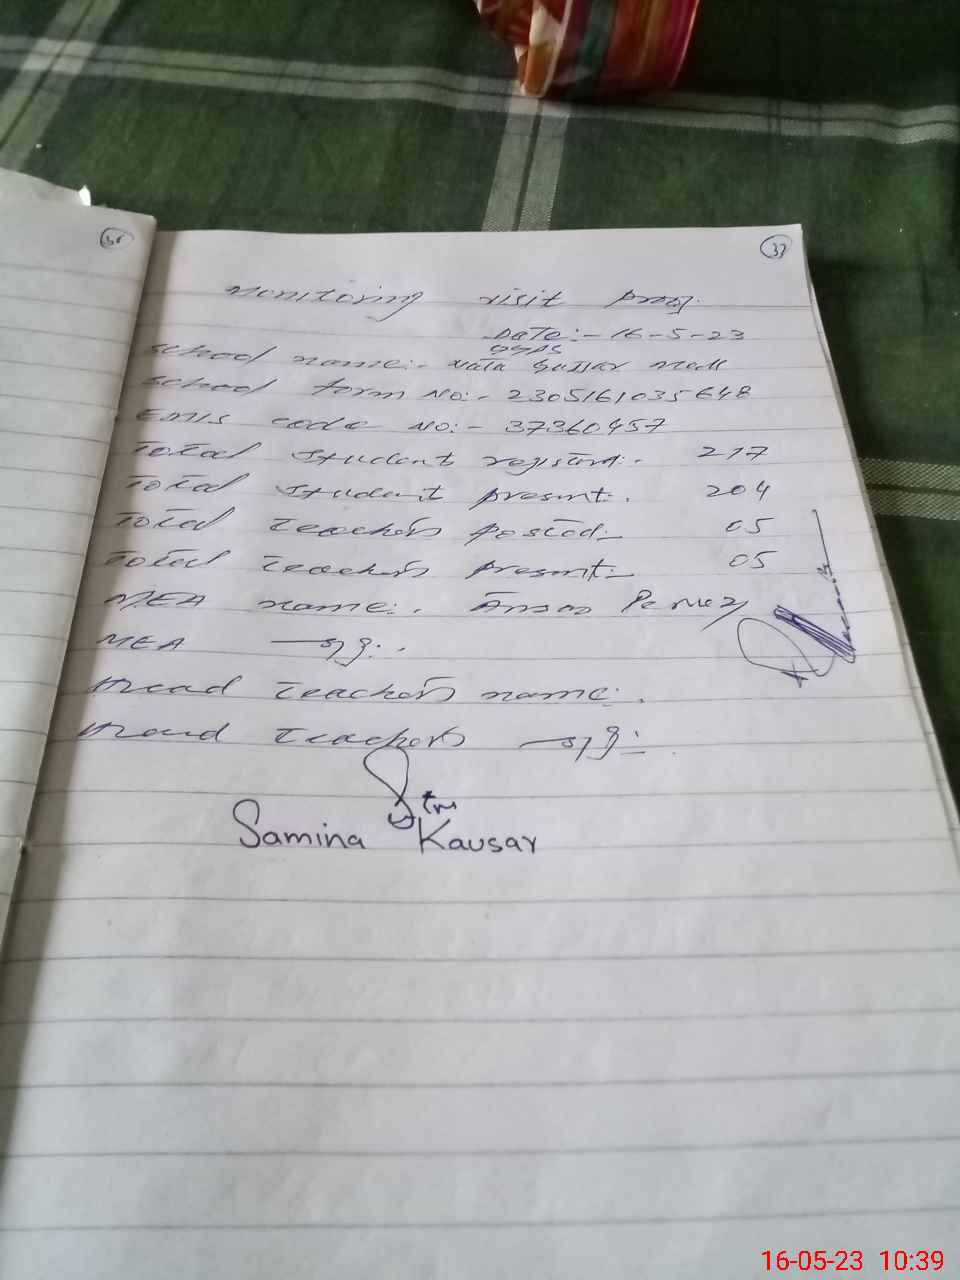 36
37
Monitoring visit prog.
Date:- 16-5-23
GGPS
School name:- Nata Gujjar Mall
School form No:- 2305161035648
EMIS code No:- 37360457
Total student register:- 217
Total student present:. 204
Total teachers posted:- 05
Total teachers present:- 05
MEA name:. Ansar Pervez
MEA sig:.
Head teachers name:.
Head teachers sig:-
Samina Kausar
16-05-23 10:39